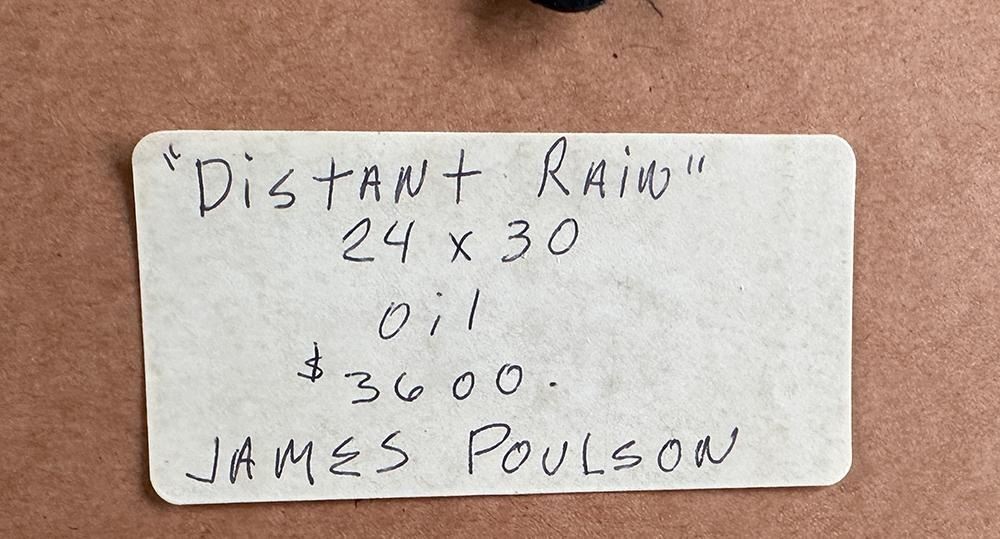 "DiStANt RAiN"
24 x 30
Oil
$3600.
JAMES POULSON